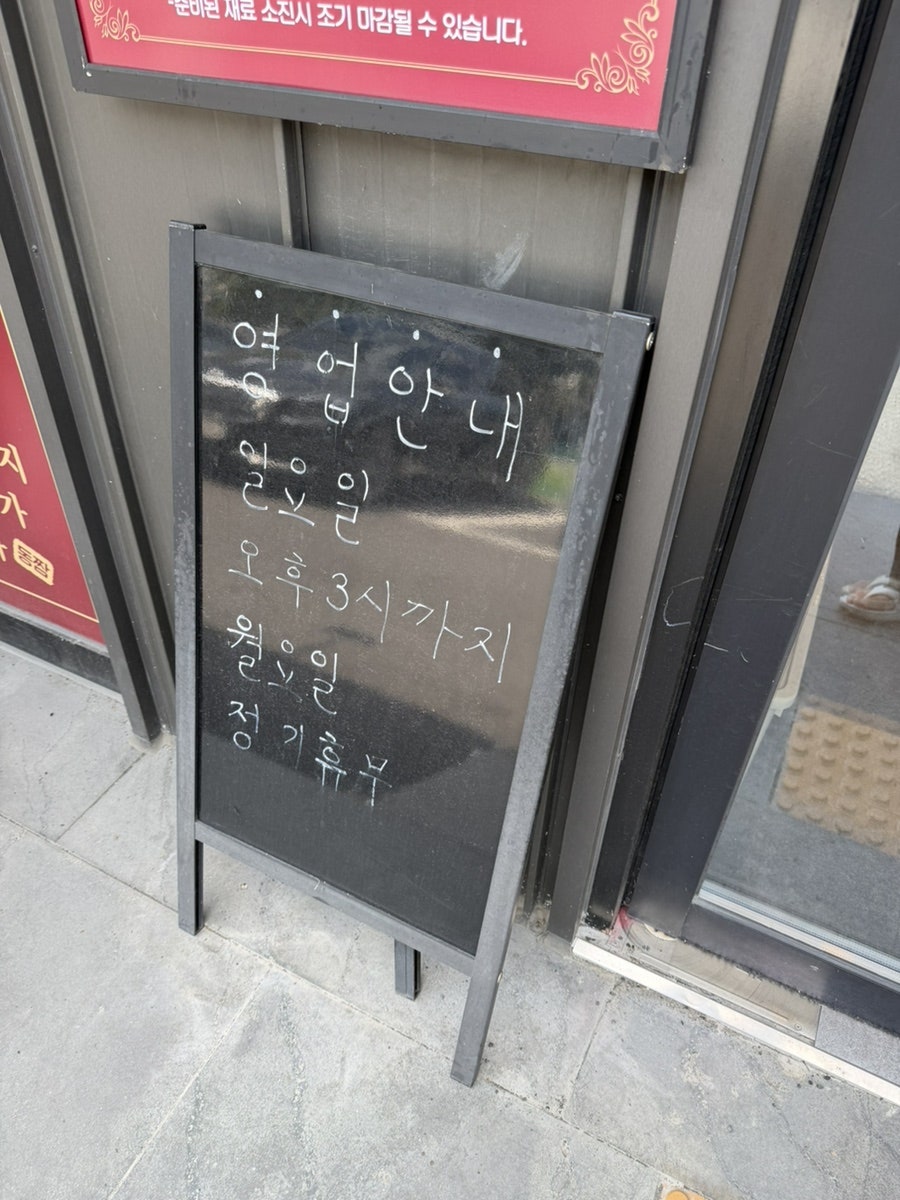 -준비된 재료 소진시 조기 마감될 수 있습니다.
영업안내
일요일
오후 3시까지
월요일
정기휴무
지
가
동짬